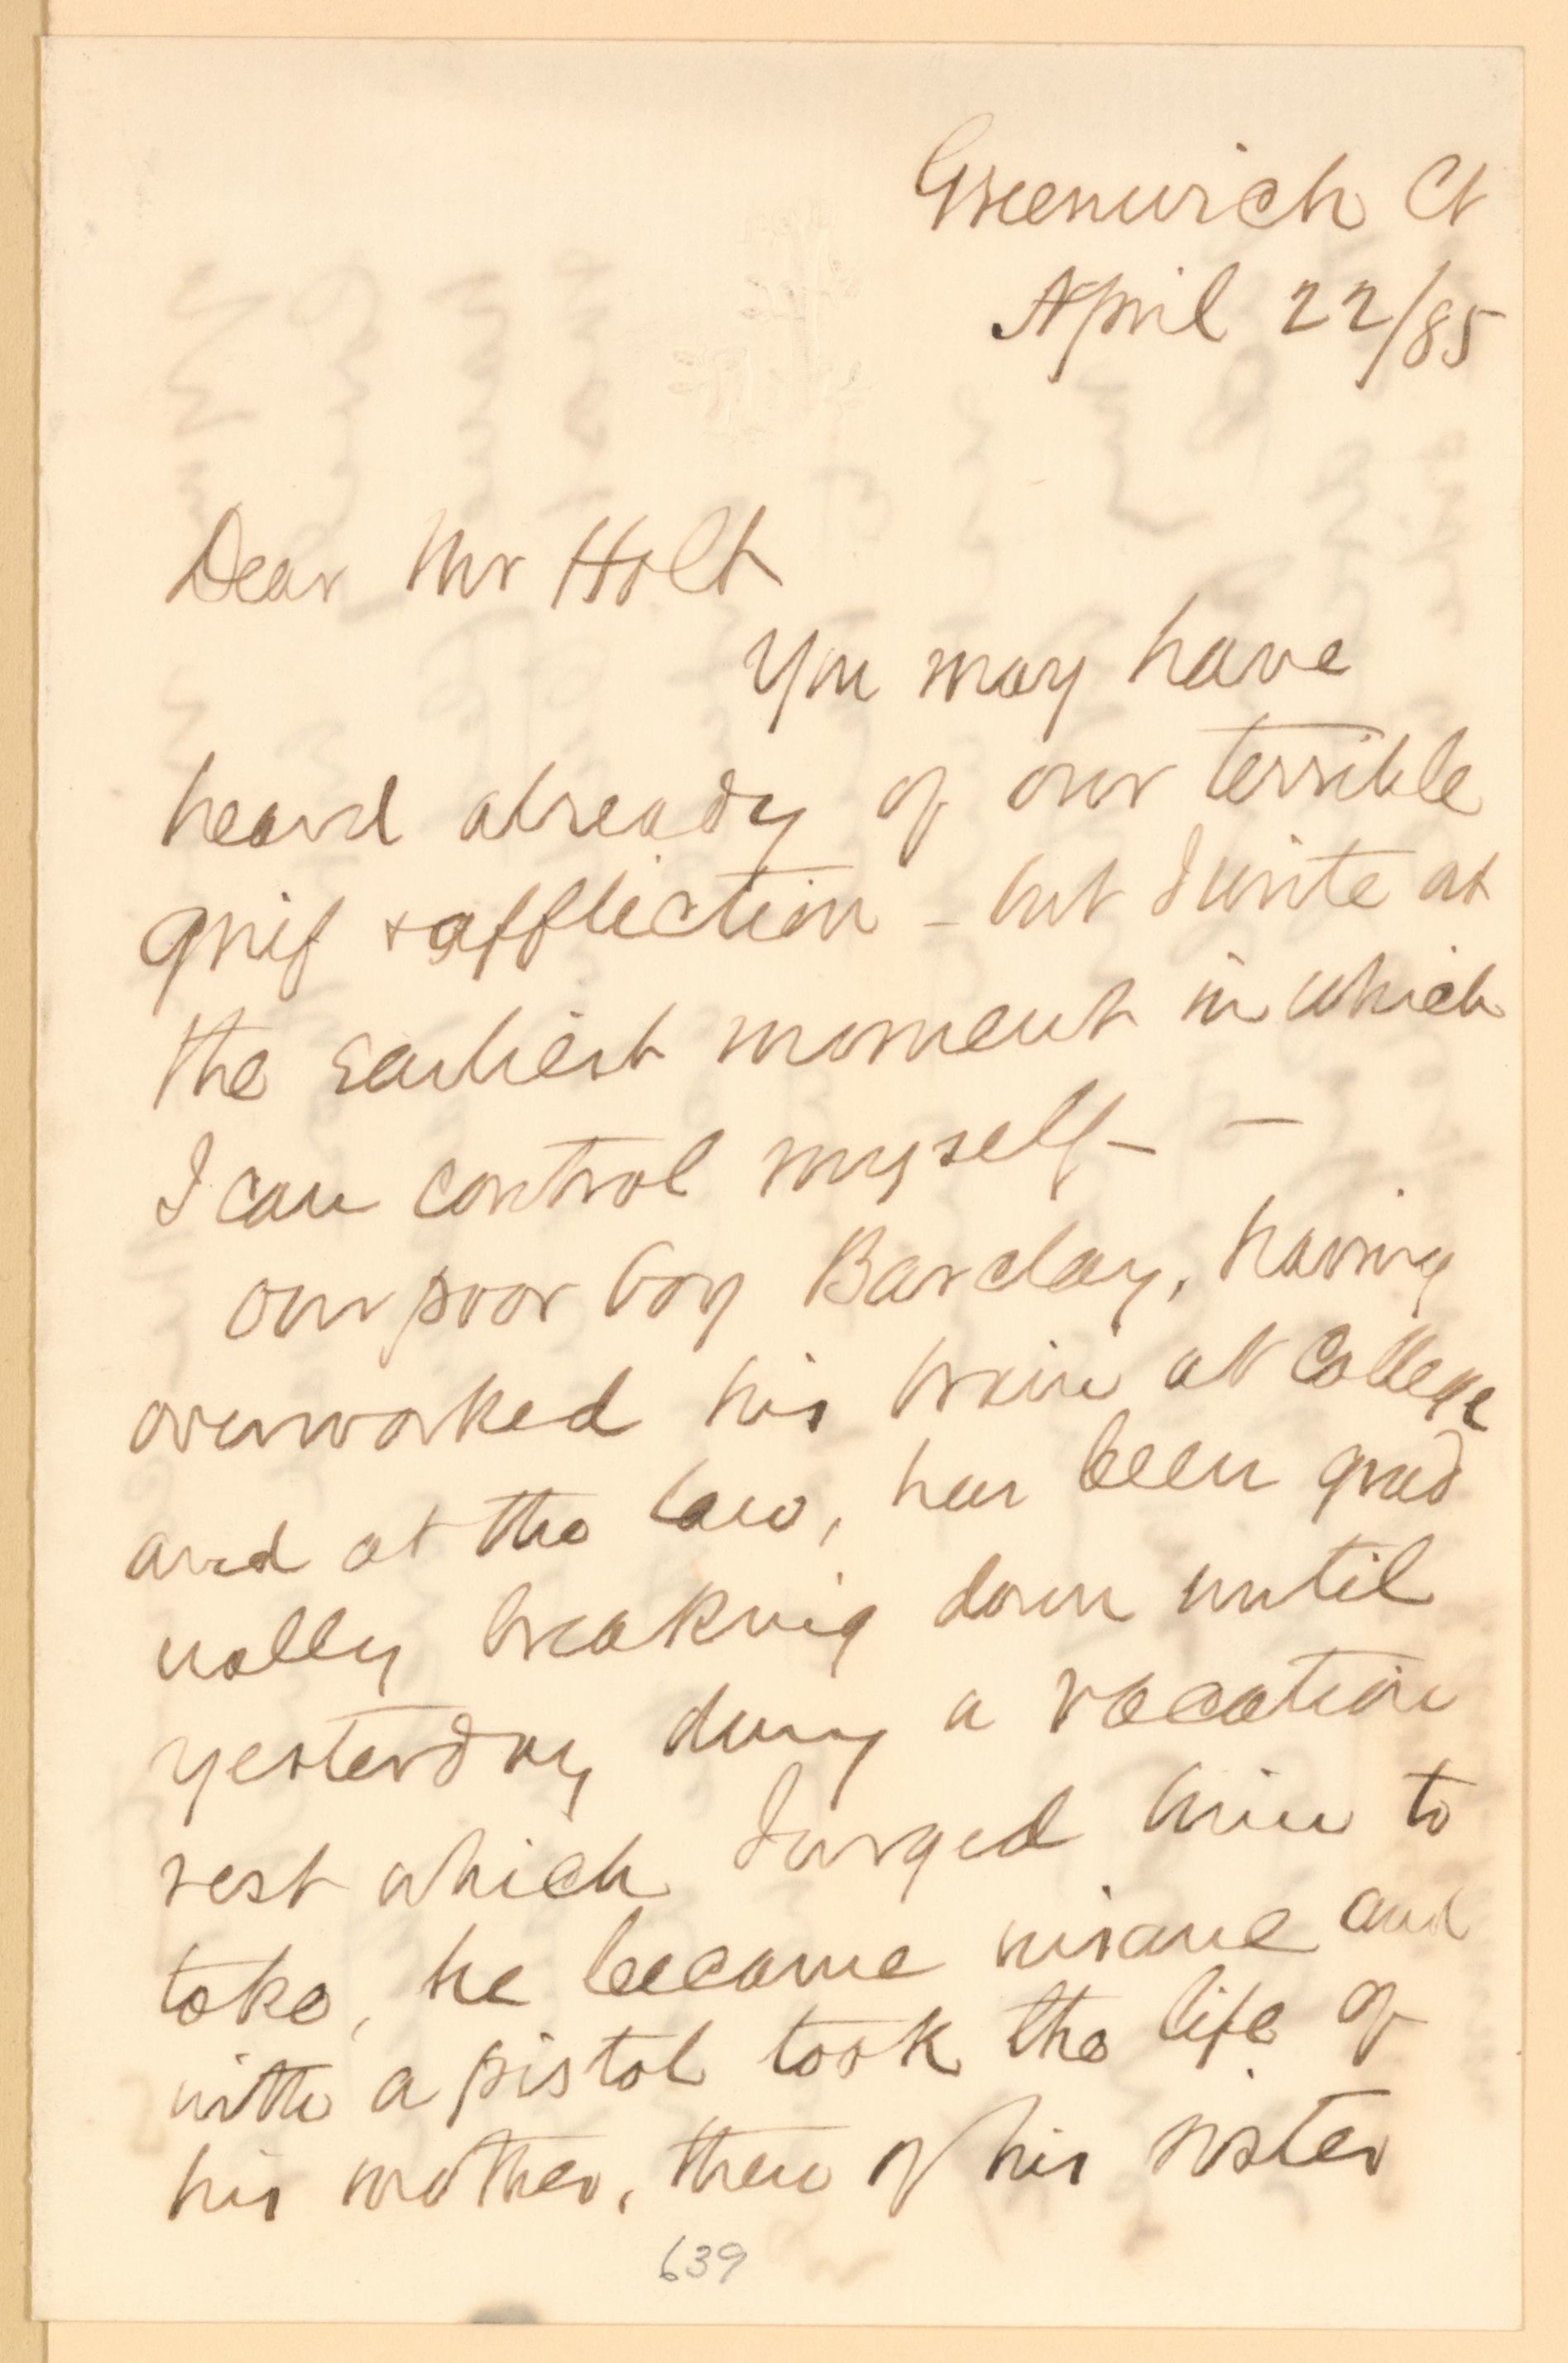 Greenwich Ct
April 22/85
Dear Mr Holt
You may have
heard already of our terrible
grief & affliction - but I write at
the earliest moment in which
I can control myself - -
Our poor boy Barclay, having
overworked his brain at College
and at the law, has been grad
ually breaking down until
yesterday during a vacation
rest which I urged him to
take, he became insane and
with a pistol took the life of
his mother, then of his sister
639